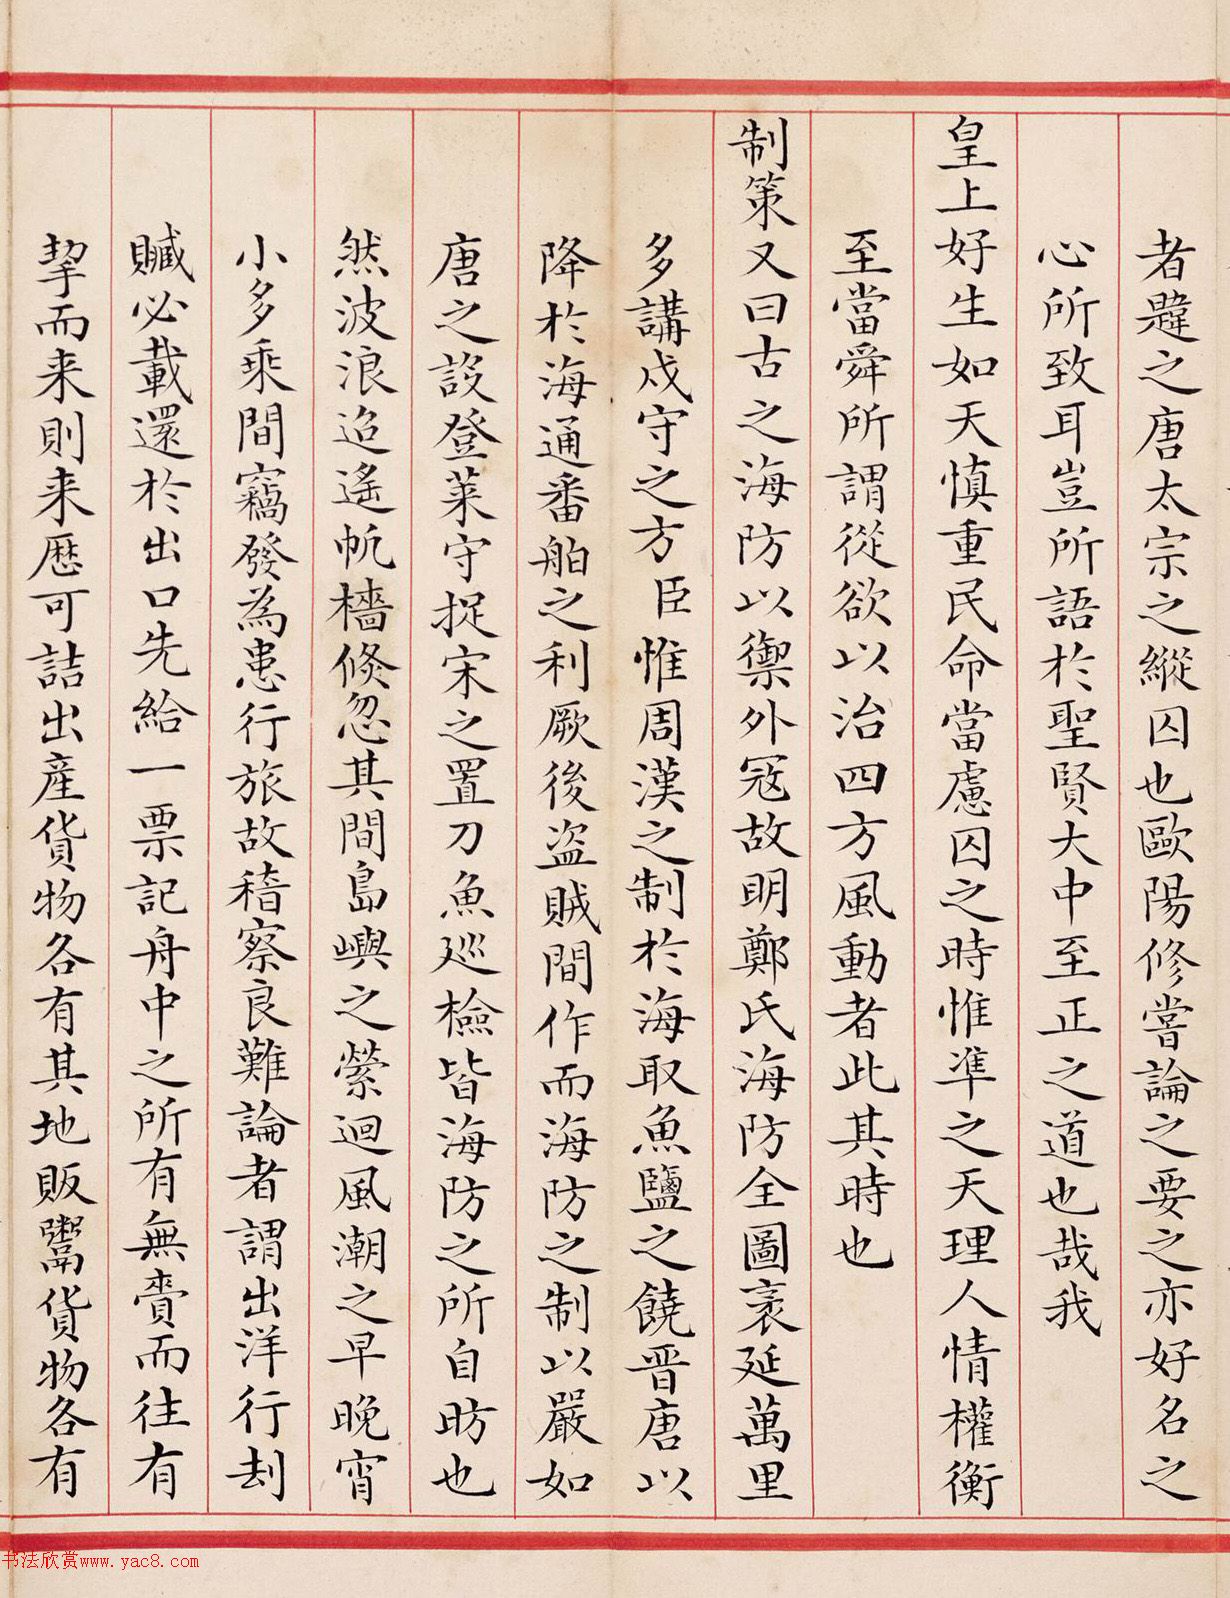 者韙之唐太宗之縱囚也歐陽修嘗論之要之亦好名之
心所致耳豈所語於聖賢大中至正之道也哉我
皇上好生如天慎重民命當慮囚之時惟準之天理人情權衡
至當舜所謂從欲以治四方風動者此其時也
制策又曰古之海防以禦外寇故明鄭氏海防全圖袤延萬里
多講戍守之方臣惟周漢之制於海取魚鹽之饒晉唐以
降於海通番舶之利厥後盜賊間作而海防之制以嚴如
唐之設登萊守捉宋之置刀魚巡檢皆海防之所自昉也
然波浪迢遙帆檣倏忽其間島嶼之縈迴風潮之早晚宵
小多乘間竊發為患行旅故稽察良難論者謂出洋行刦
贓必載還於出口先給一票記舟中之所有無賫而往有
挈而来則来歷可詰出產貨物各有其地販鬻貨物各有
书法欣赏www.yac8.com